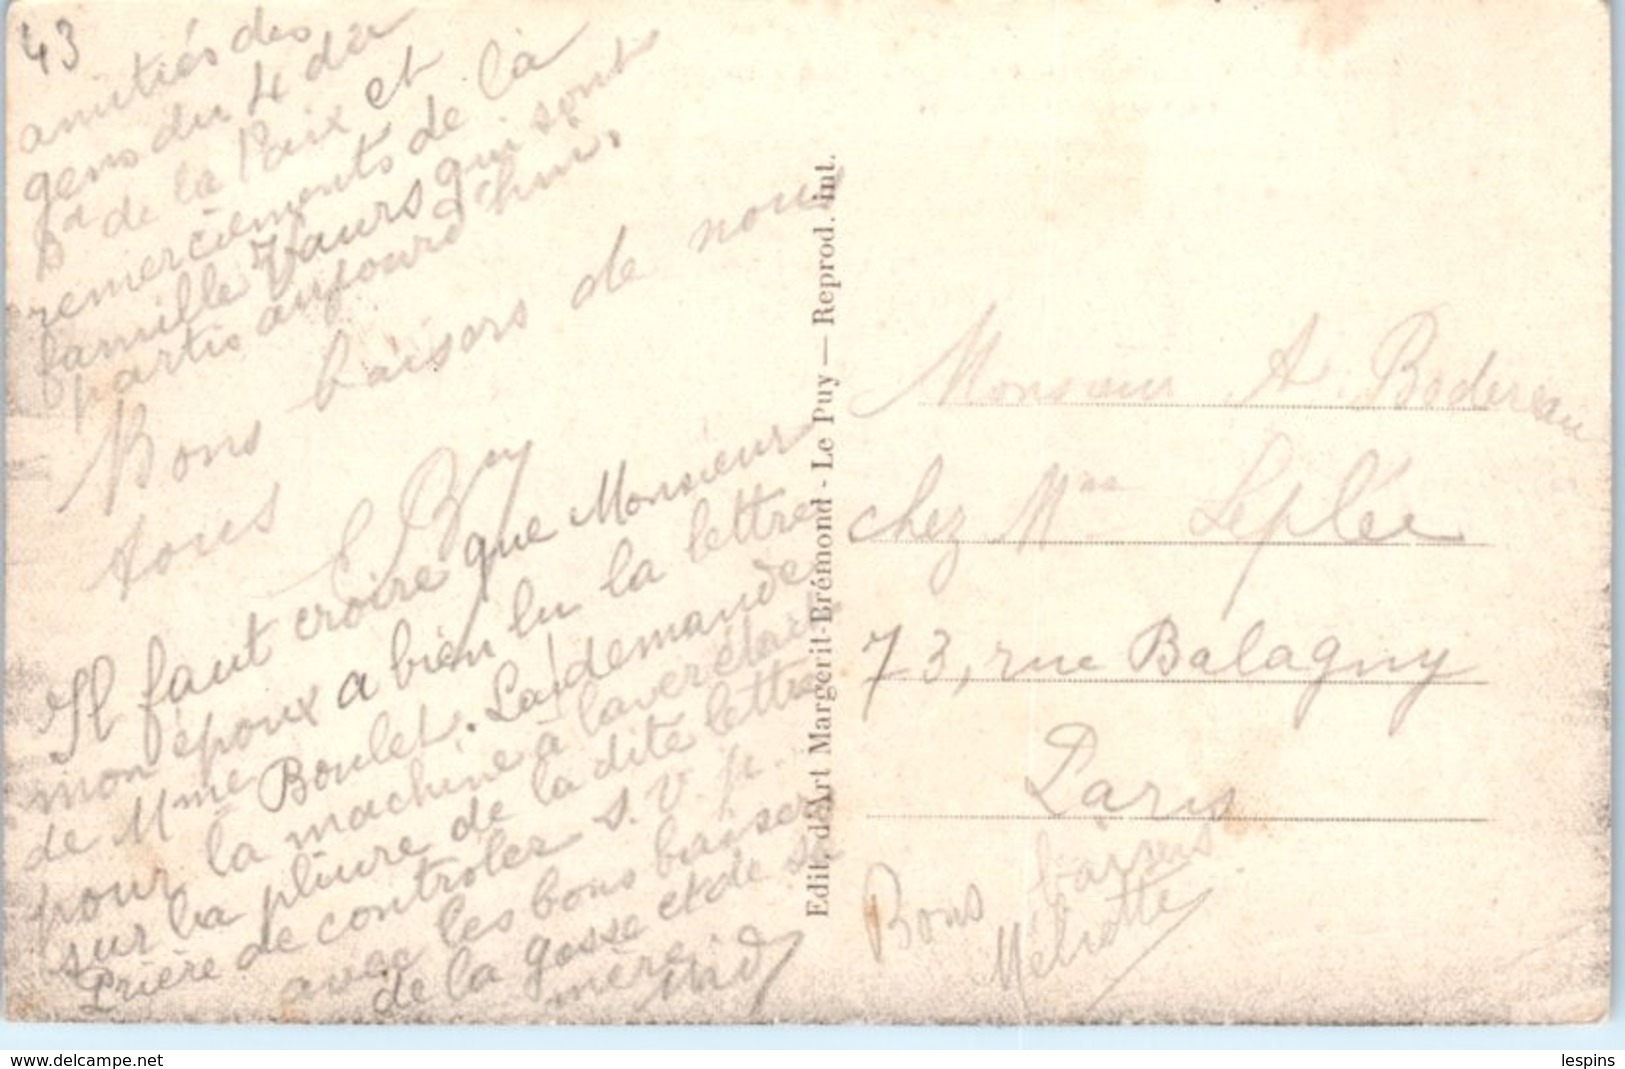 43
amitiés des
gens du 4 du
Bd de la Paix et
remerciements de la
famille Vaurs qui sont
partis aujourd'hui.
Bons baisers de nous
tous
Il faut croire que Monsieur
mon époux a bien lu la lettre
de Mme Boulet. La demande
pour la machine à laver était
sur la pliure de la dite lettre
Prière de contrôler s. v. p.
avec les bons baisers
de la gosse et de sa
mère
Edit. d'Art Margerit-Brémond - Le Puy — Reprod. int.
Monsieur A. Bodereau
chez Mme Leplée
73, rue Balagny
Paris
Bons baisers